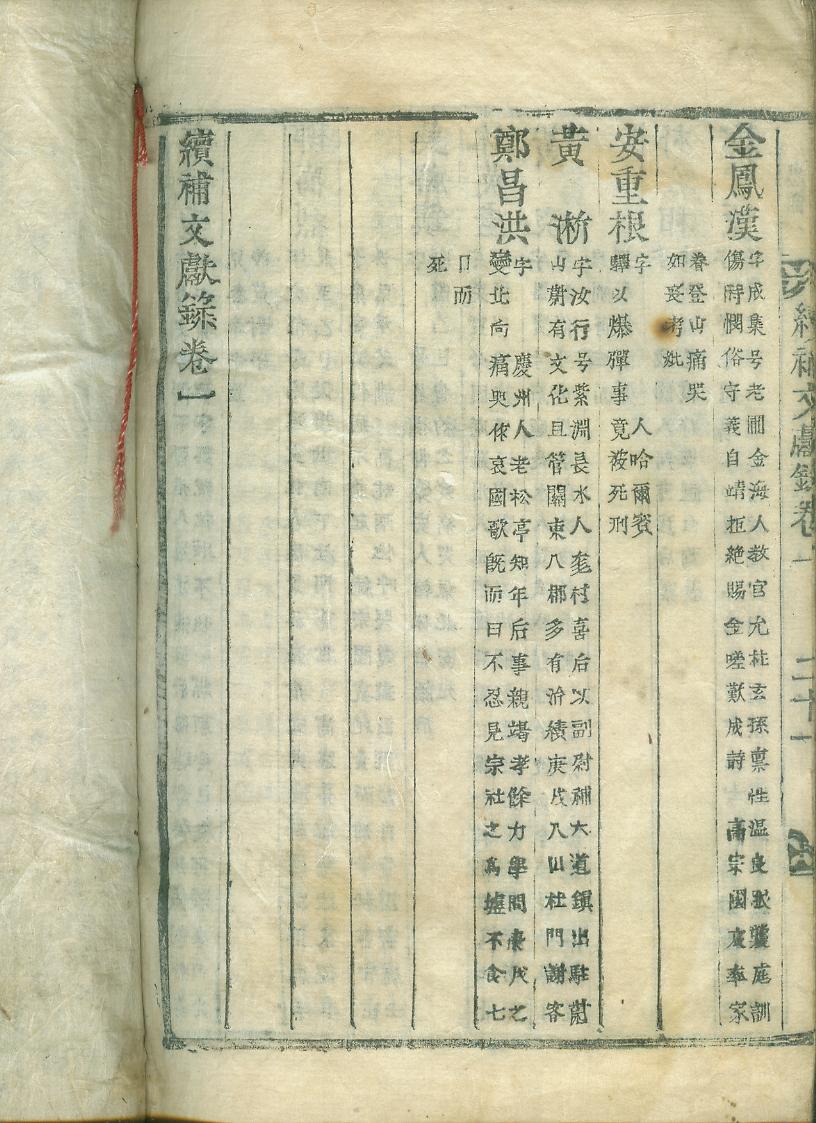 續補文獻錄卷一 二十一
金鳳漢
字成集号老圃金海人敎官允柱玄孫禀性溫良承襲庭訓
傷時憫俗守義自靖拒絶賜金嗟歎成詩 高宗國哀率家
眷登山痛哭
如喪考妣
安重根
字 人哈爾賓
驛以爆彈事竟被死刑
黃淅
字汝行号紫淵長水人 村喜后以副尉補大道鎭出駐蔚
山蔚有文化且管關東八郡多有治績庚戌入山杜門謝客
鄭昌洪
字 慶州人老松亭知年后事親竭孝餘力學問庚戌之
變北向痛哭作哀國歌旣而曰不忍見宗社之爲墟不食七
日而
死
續補文獻錄卷一